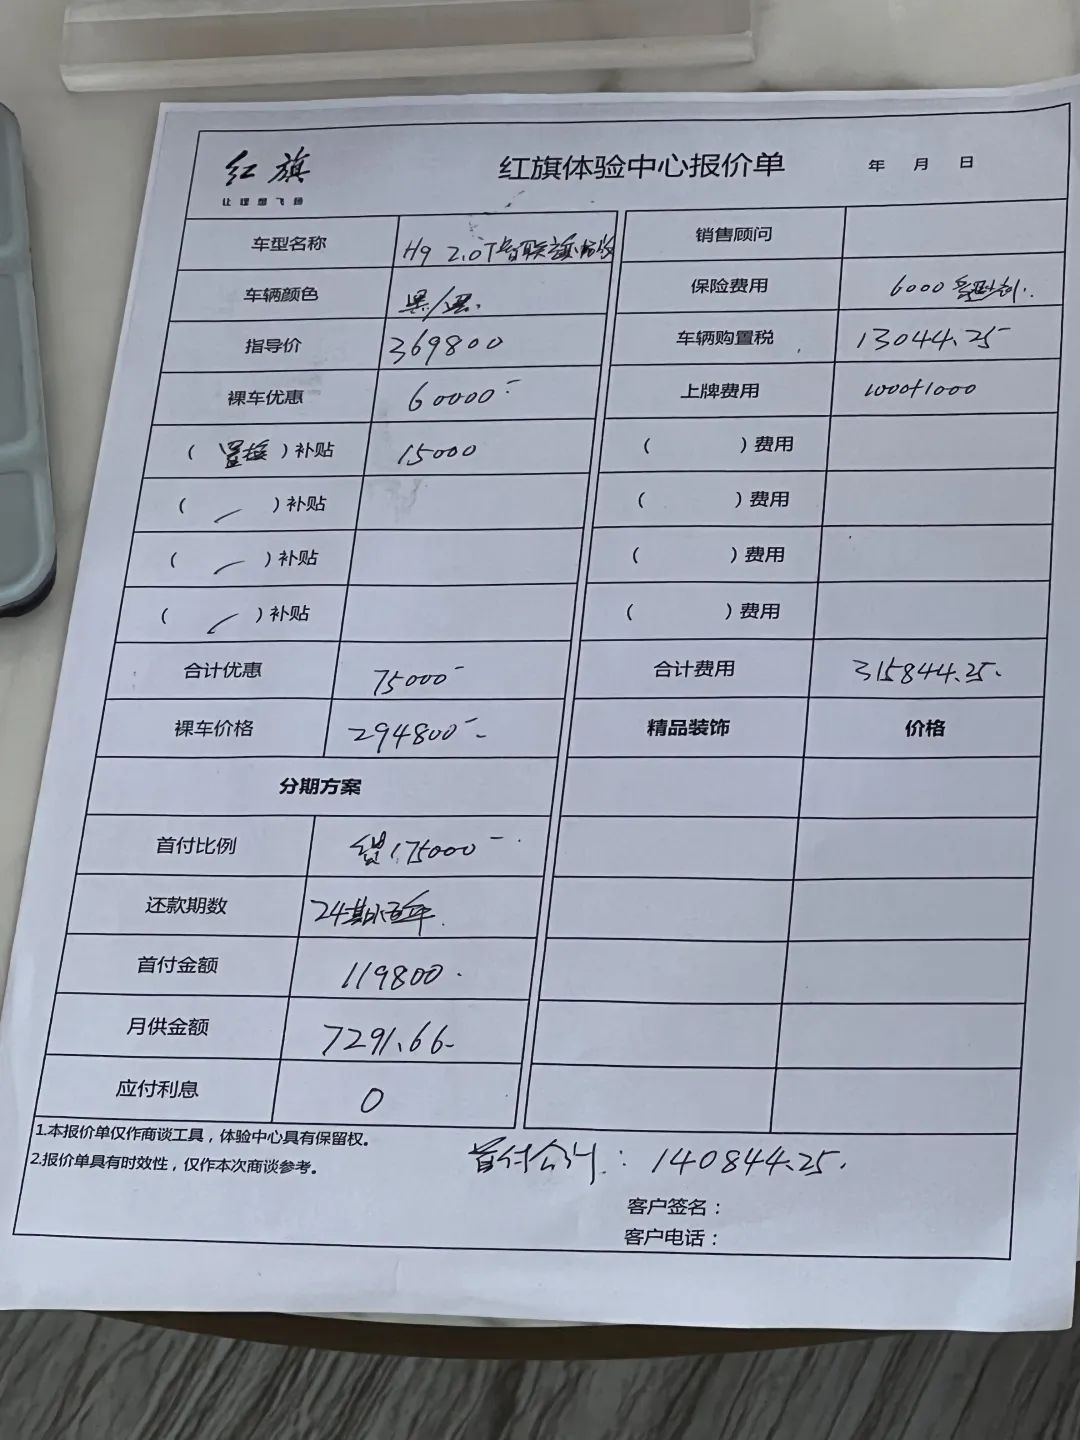 红旗
让理想飞扬
红旗体验中心报价单
年 月 日
车型名称 H9 2.0T智联旗
销售顾问
车辆颜色 黑/黑.
保险费用 6000
指导价 369800
车辆购置税 13044.25
裸车优惠 60000
上牌费用 1000+1000
(置换)补贴 15000
( )费用
( )补贴
( )费用
( )补贴
( )费用
( )补贴
( )费用
合计优惠 75000
合计费用 315844.25.
裸车价格 294800
精品装饰 价格
分期方案
首付比例 贷175000
还款期数 24期
首付金额 119800.
月供金额 7291.66
应付利息 0
1.本报价单仅作商谈工具，体验中心具有保留权。
2.报价单具有时效性，仅作本次商谈参考。
首付合计: 140844.25.
客户签名：
客户电话：